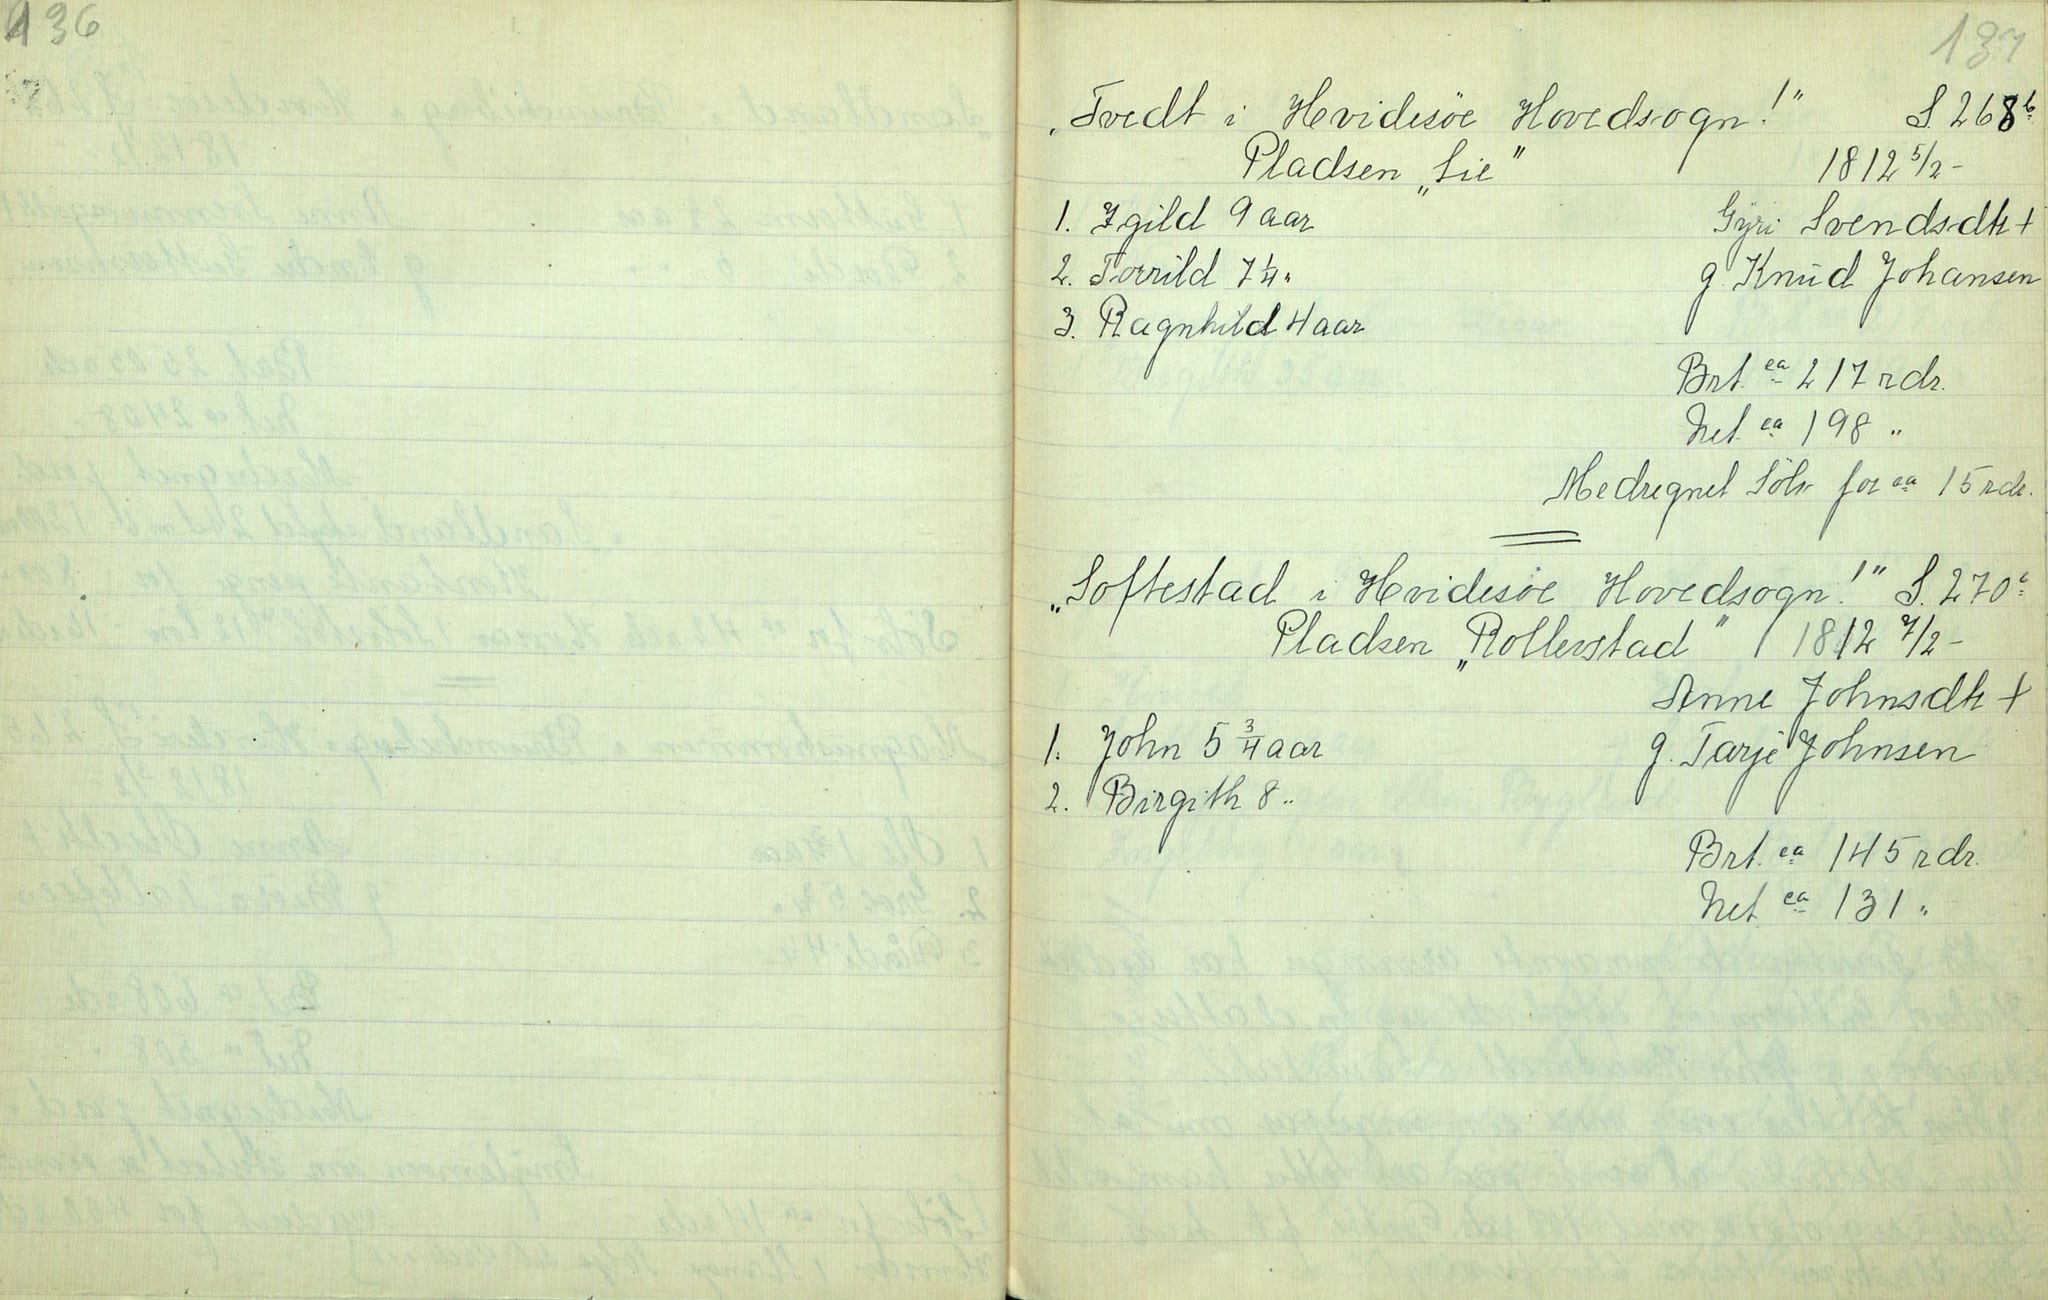 136
137
„Tvedt i Hvidesøe Hovedsogn!” S. 268b
Pladsen „Lie” 1812 5/2 -
1. Igild 9 aar Gyri Svendsdtr +
2. Torrild 7 1/4 „ g. Knud Johansen
3. Ragnhild 4 aar
Brt. ca 217 rdr.
Net. ca 198 „
Medregnet Sölv for ca 15 rdr.
„Softestad i Hvidesøe Hovedsogn!” S. 270a
Pladsen „Rollerstad” 1812 7/2 -
Anne Johnsdtr +
1. John 5 3/4 aar g. Tarje Johnsen
2. Birgith 8 „
Brt. ca 145 rdr.
Net ca 131 „